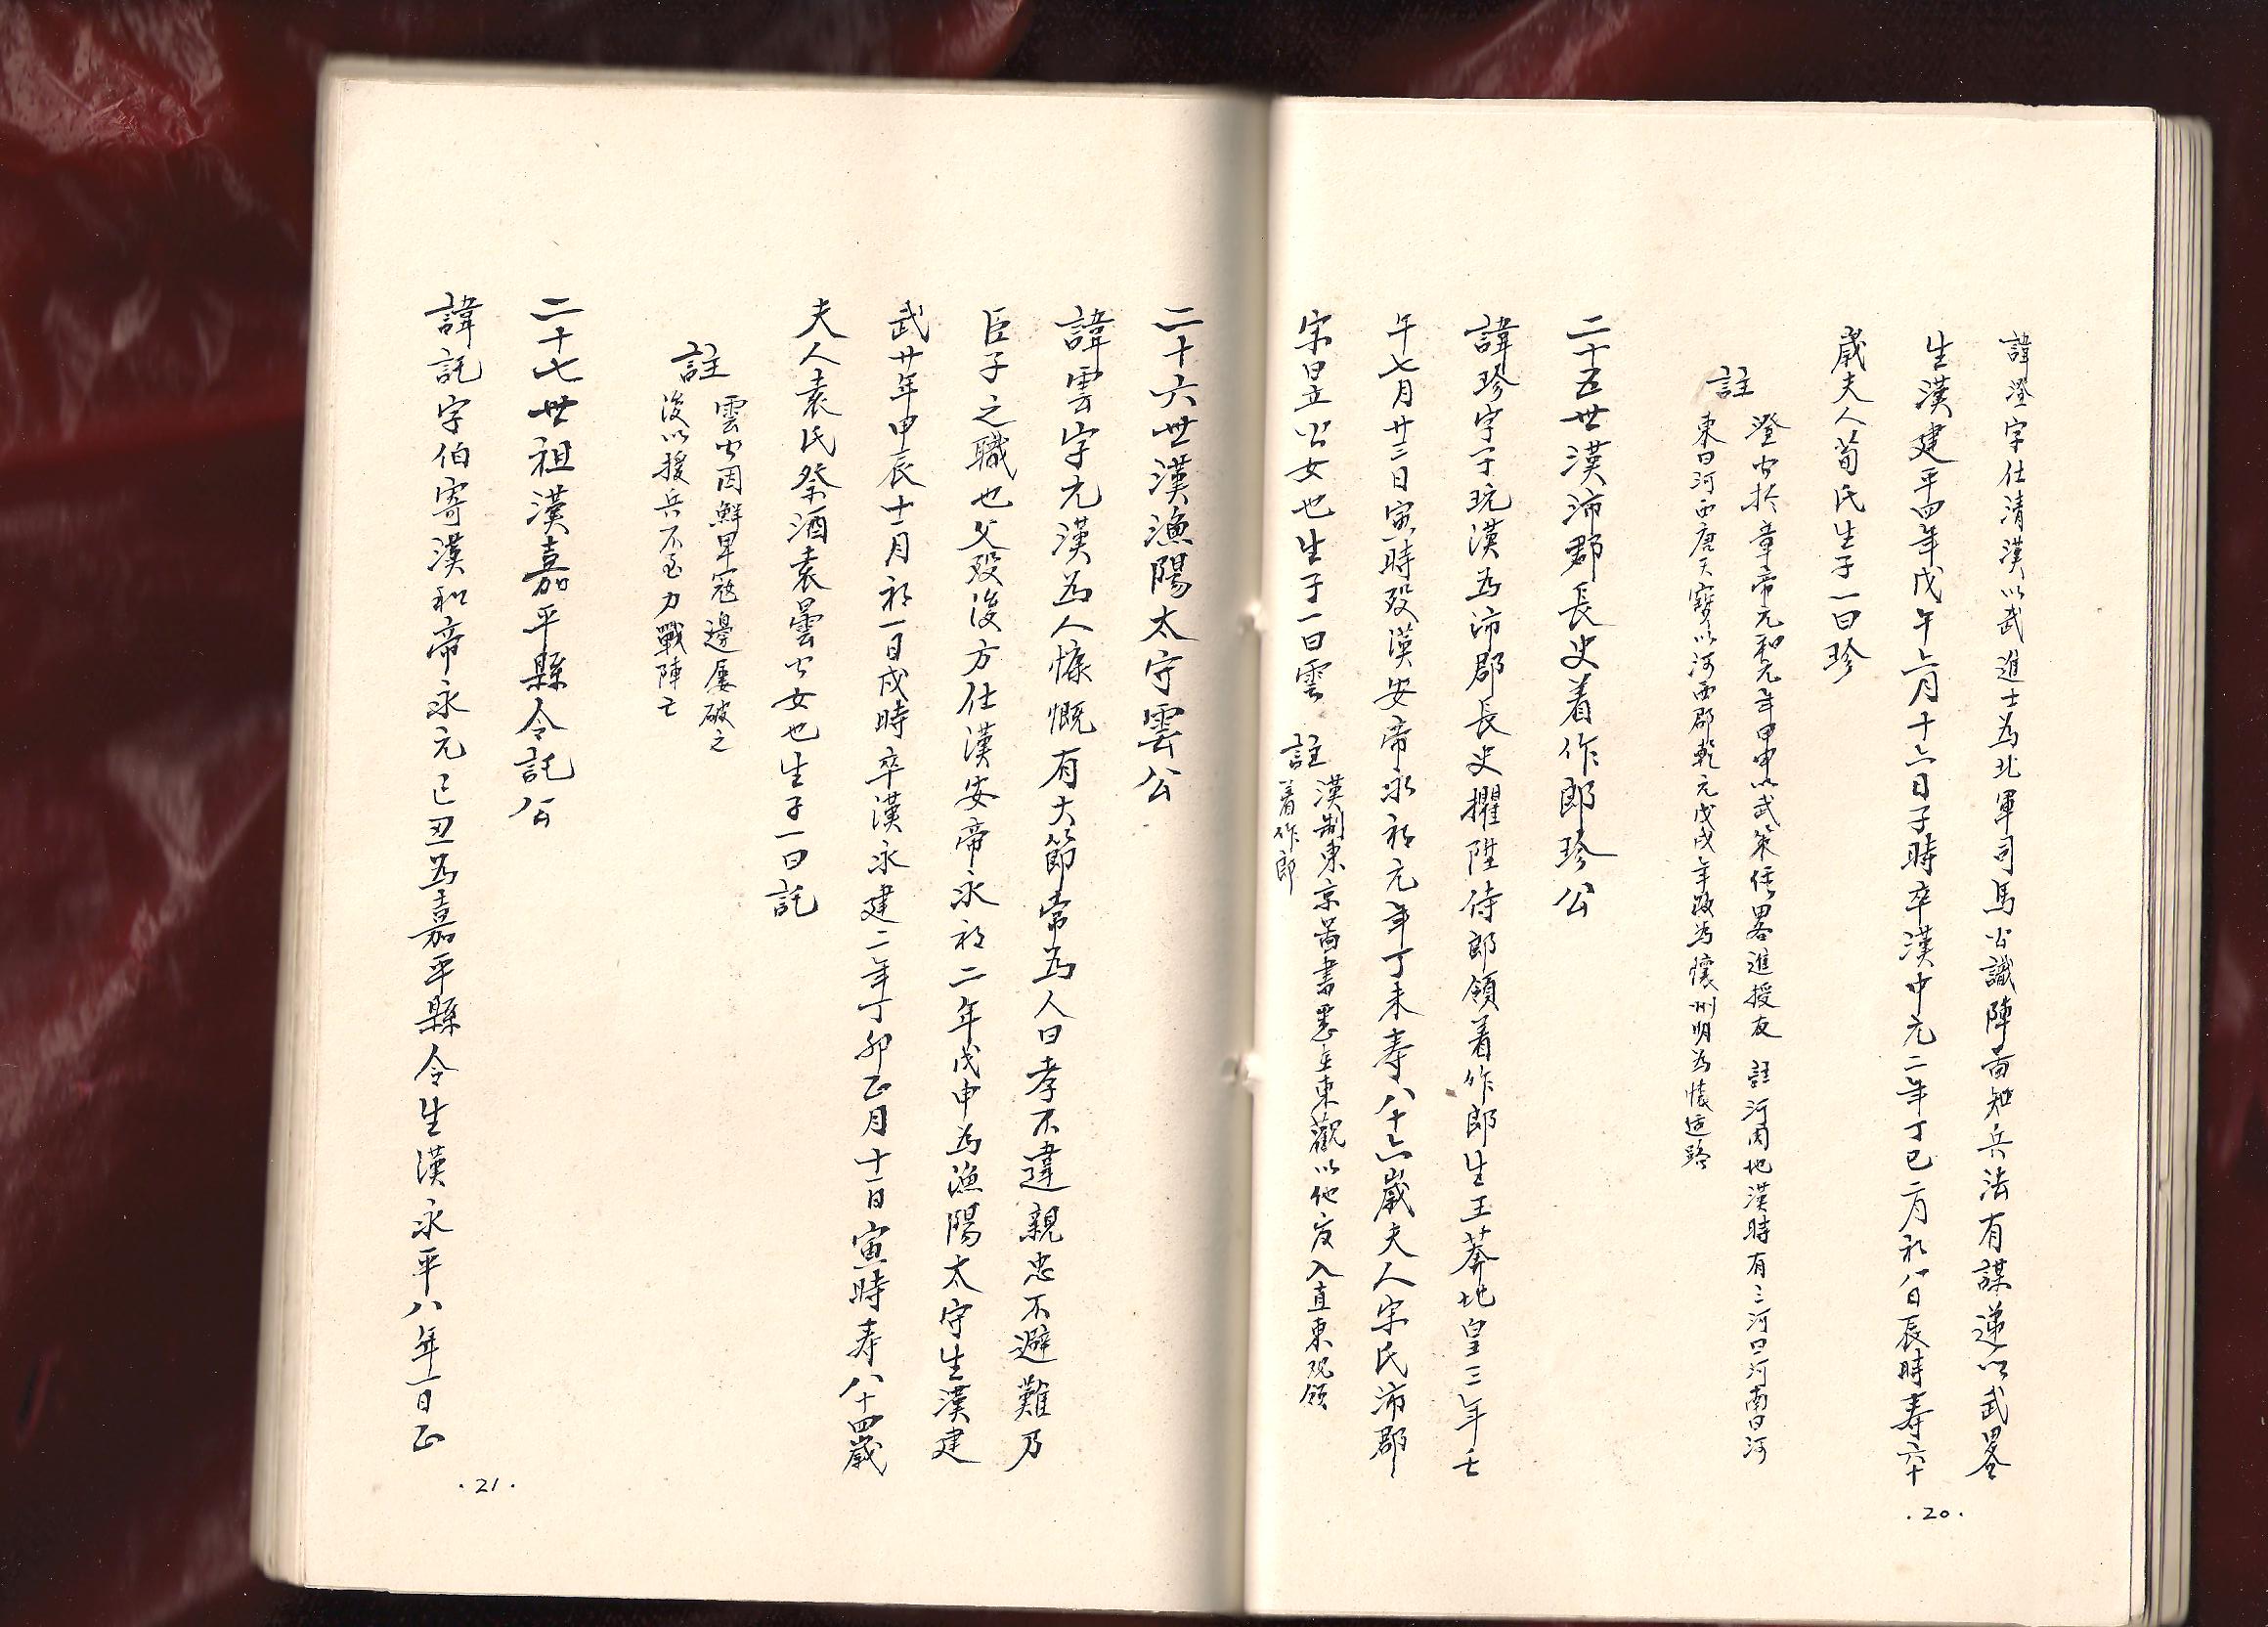 諱澄字仕清漢以武進士為北軍司馬公識陣面知兵法有謀遂以武畧
生漢建平四年戊午六月十六日子時卒漢中元二年丁巳二月初八日辰時寿六十
歲夫人荀氏生子一曰珍
註
澄公於章帝元和元年甲申以武策任畧進授友 註河内地漢時有三河曰河南曰河
東曰河西唐天寶以河西郡乾元戊戌年改為懷州明為懷慶路
二十五世漢沛郡長史着作郎珍公
諱珍字子玩漢為沛郡長史擢陞侍郎領着作郎生王莽地皇三年壬
午七月廿三日寅時殁漢安帝永初元年丁未寿八十六歲夫人宗氏沛郡
宗昱公女也生子一曰雲 註
漢制東京啚書悉在東觀以他官入直東观領
着作郎
·20·
二十六世漢漁陽太守雲公
諱雲字元漢為人慷慨有大節常為人曰孝不違親忠不避難乃
臣子之職也父殁後方仕漢安帝永初二年戊申為漁陽太守生漢建
武廿年甲辰十一月初一日戌時卒漢永建二年丁卯正月十一日寅時寿八十四歲
夫人袁氏祭酒袁曇公女也生子一曰託
註
雲公因鮮卑寇邊屢破之
後以援兵不至力戰陣亡
二十七世祖漢嘉平縣令託公
諱託字伯寄漢和帝永元己丑為嘉平縣令生漢永平八年一日正
·21·